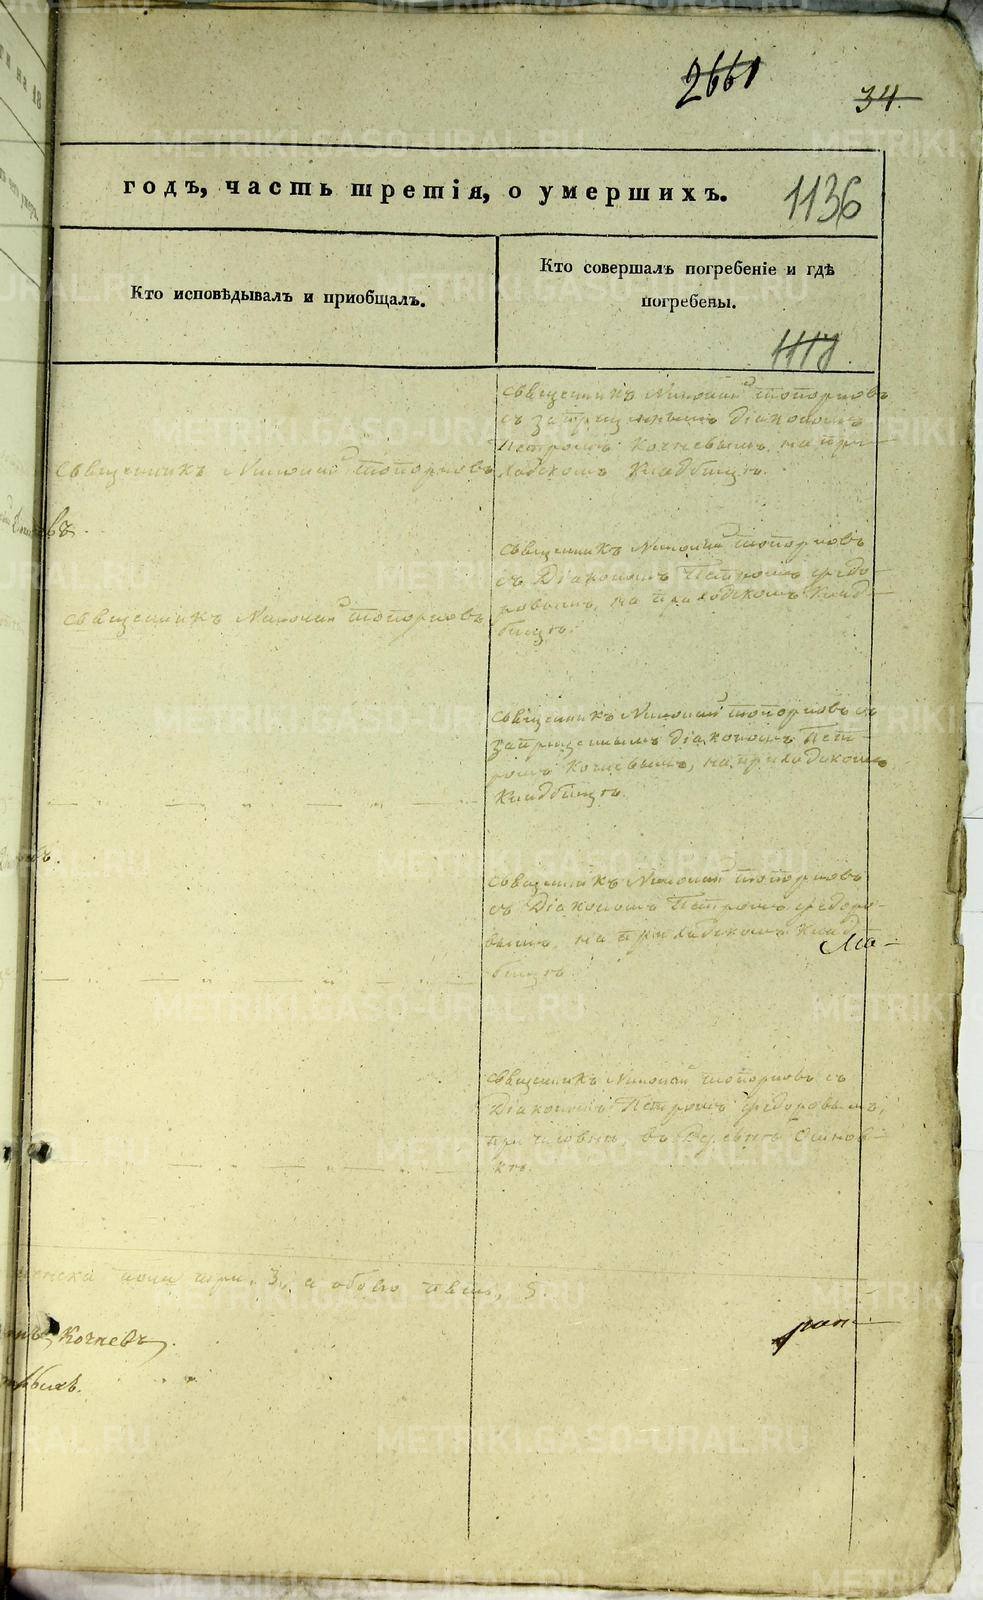 2661
34.
годъ, часть третія, о умершихъ.
1136
Кто исповѣдывалъ и приобщалъ.
Кто совершалъ погребеніе и гдѣ
погребены.
1118
Священникъ Николай Топорковъ
съ запрещеннымъ Діакономъ
Петромъ Кочневымъ, на при-
ходскомъ Кладбищѣ.
Священникъ Николай Топорковъ
Священникъ Николай Топорковъ
съ Діакономъ Петромъ Федо-
ровымъ, на приходскомъ Клад-
бищѣ.
Священникъ Николай Топорковъ
Священникъ Николай Топорковъ съ
запрещеннымъ Діакономъ Пет-
ромъ Кочневымъ, на приходскомъ
Кладбищѣ.
Священникъ Николай Топорковъ
съ Діакономъ Петромъ Федоро-
вымъ, на приходскомъ Клад-
бищѣ.
Священникъ Николай Топорковъ съ
Діакономъ Петромъ Федоровымъ,
при часовнѣ въ Деревнѣ
кѣ.
пола три, 3, а обоего пять, 5.
Кочневъ.
METRIKI.GASO-URAL.RU